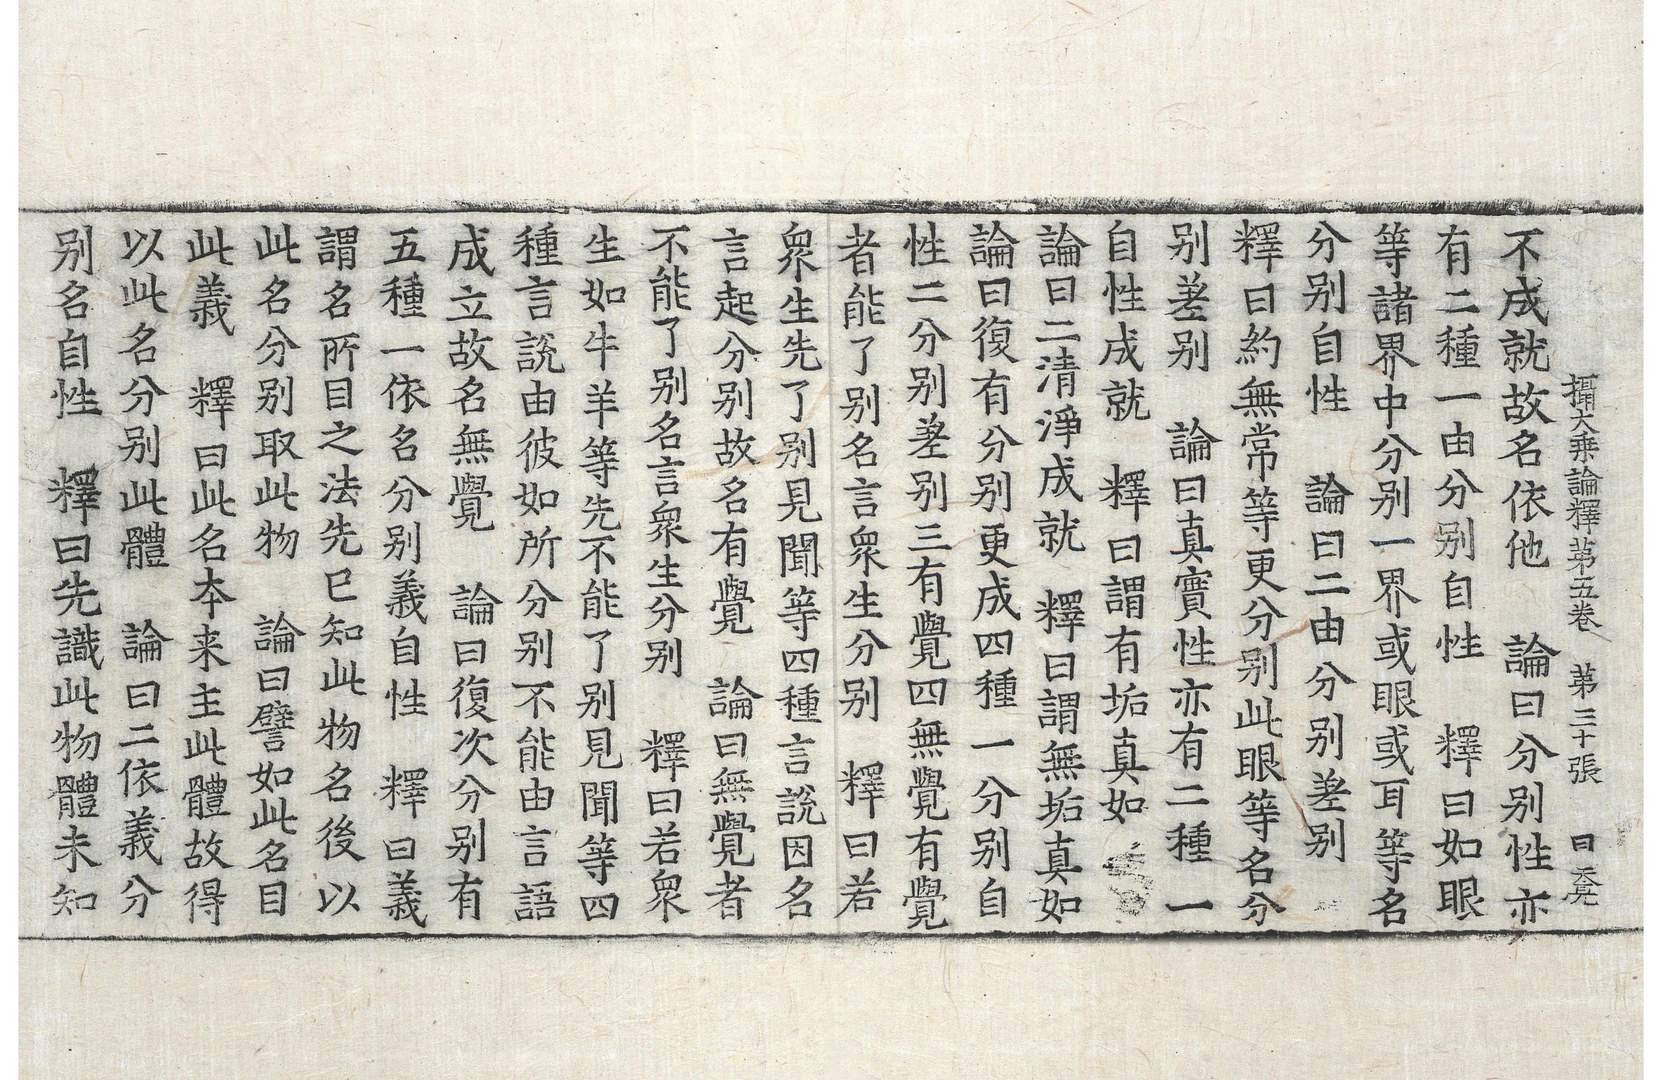 攝大乘論釋第五卷 第三十張 曰
不成就故名依他 論曰分別性亦
有二種一由分別自性 釋曰如眼
等諸界中分別一界或眼或耳等名
分別自性 論曰二由分別差別
釋曰約無常等更分別此眼等名分
別差別 論曰真實性亦有二種一
自性成就 釋曰謂有垢真如
論曰二清淨成就 釋曰謂無垢真如
論曰復有分別更成四種一分別自
性二分別差別三有覺四無覺有覺
者能了別名言眾生分別 釋曰若
眾生先了別見聞等四種言說因名
言起分別故名有覺 論曰無覺者
不能了別名言眾生分別 釋曰若眾
生如牛羊等先不能了別見聞等四
種言說由彼如所分別不能由言語
成立故名無覺 論曰復次分別有
五種一依名分別義自性 釋曰義
謂名所目之法先已知此物名後以
此名分別取此物 論曰譬如此名目
此義 釋曰此名本来主此體故得
以此名分別此體 論曰二依義分
別名自性 釋曰先識此物體未知